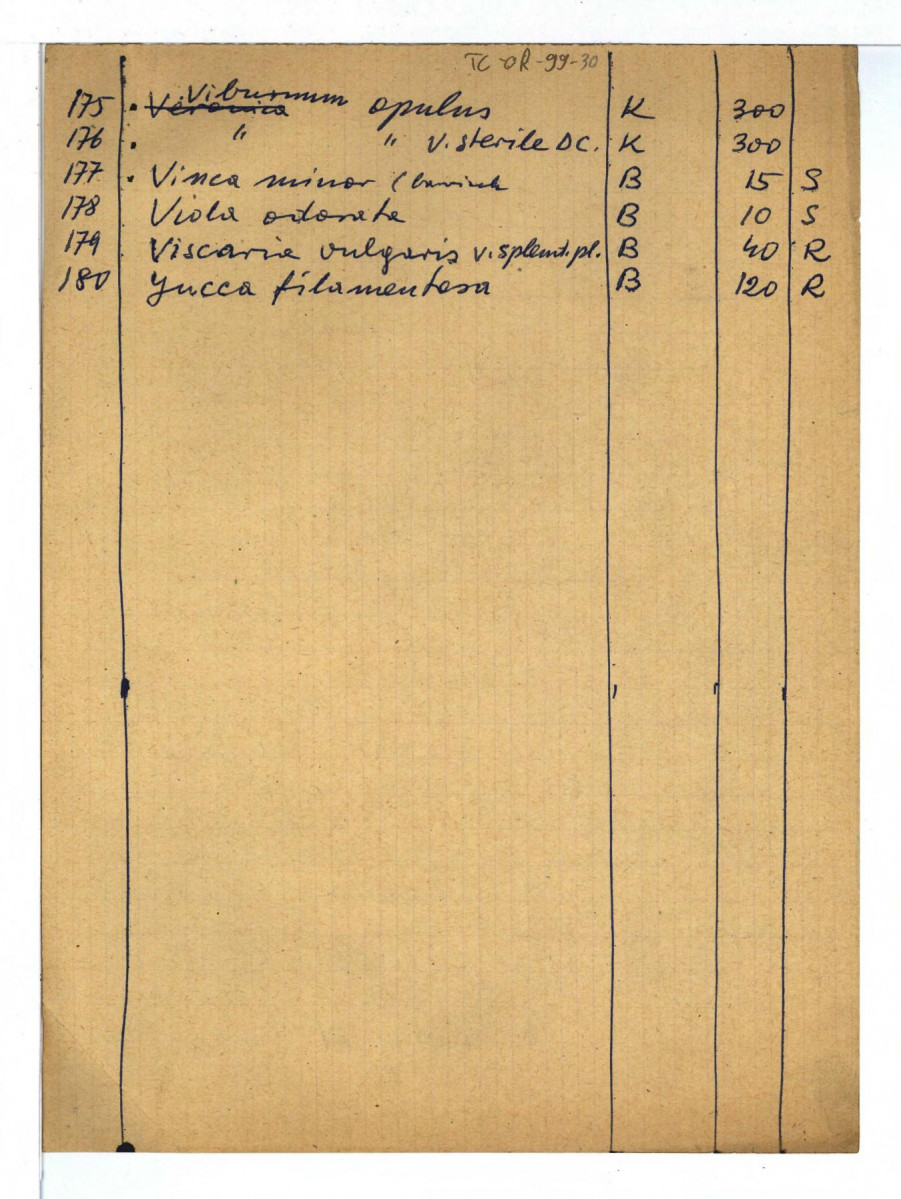 TC-OR-99-30
175 . Veronica Viburnum opulus K 300
176 . " " v. sterile DC. K 300
177 . Vinca minor ( B 15 S
178 Viola odorata B 10 S
179 Viscaria vulgaris v. splend. pl. B 40 R
180 Yucca filamentosa B 120 R